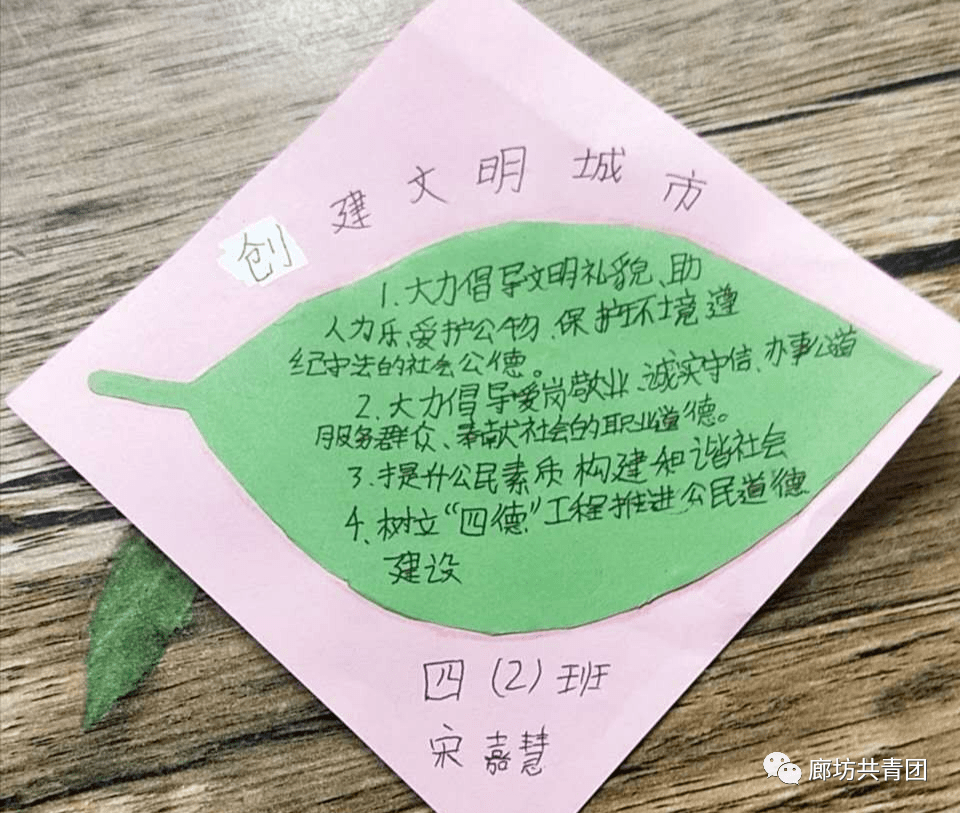 创建文明城市
1.大力倡导文明礼貌、助
人为乐、爱护公物、保护环境遵
纪守法的社会公德。
2.大力倡导爱岗敬业、诚实守信、办事公道
服务群众、奉献社会的职业道德。
3.提升公民素质构建和谐社会
4、树立“四德”工程推进公民道德
建设
四(2)班
宋嘉慧
廊坊共青团